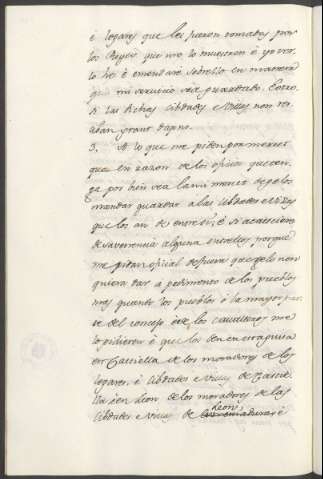 é logares que les fueron tomados por
los Reyes que no lo merecieron é yo
lo veré é emendaré sobrello en manera
que mi servicio sea guardado. Et otro
si las dichas cibdades é Villas non re
ciban grant dapno.
3. A lo que me piden por merced
que en razon de los oficios que ten
ga por bien sea la mi merced de gelos
mandar guardar a las cibdades é Villas
que los an de entre si, é si acaesciere
desavenencia alguna entrellos, porque
me pidan oficial de fuera que gelo non
quiera dar a pedimento de los pueblos
mas quanto los pueblos é la mayor par
te del concejo é de los cavalleros me
lo pidieren é que los den en esta guisa
en Castiella de los moradores de los
logares é Cibdades é Villas de Castie
lla é en Leon de los moradores de las
cibdades é Villas de Leon é